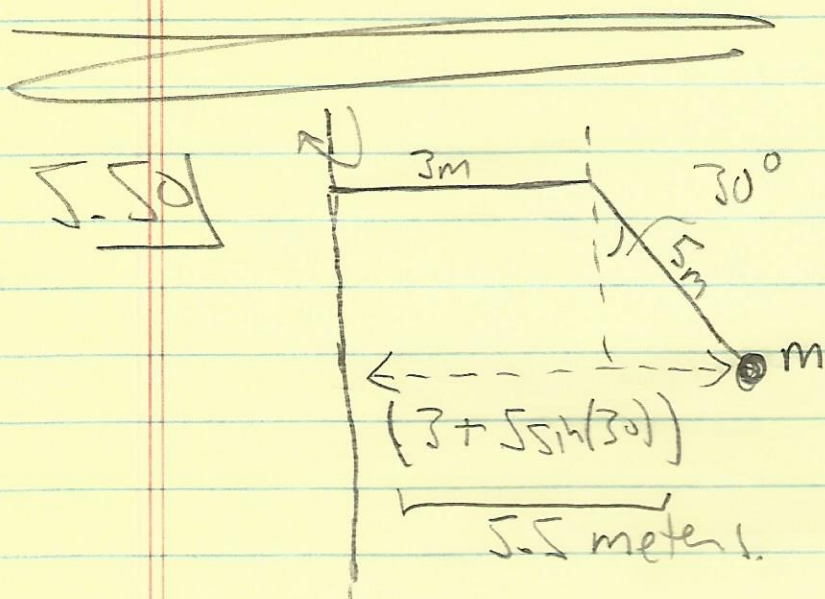 5.50
3m
30°
5m
m
(3 + 5sin(30))
5.5 meters.